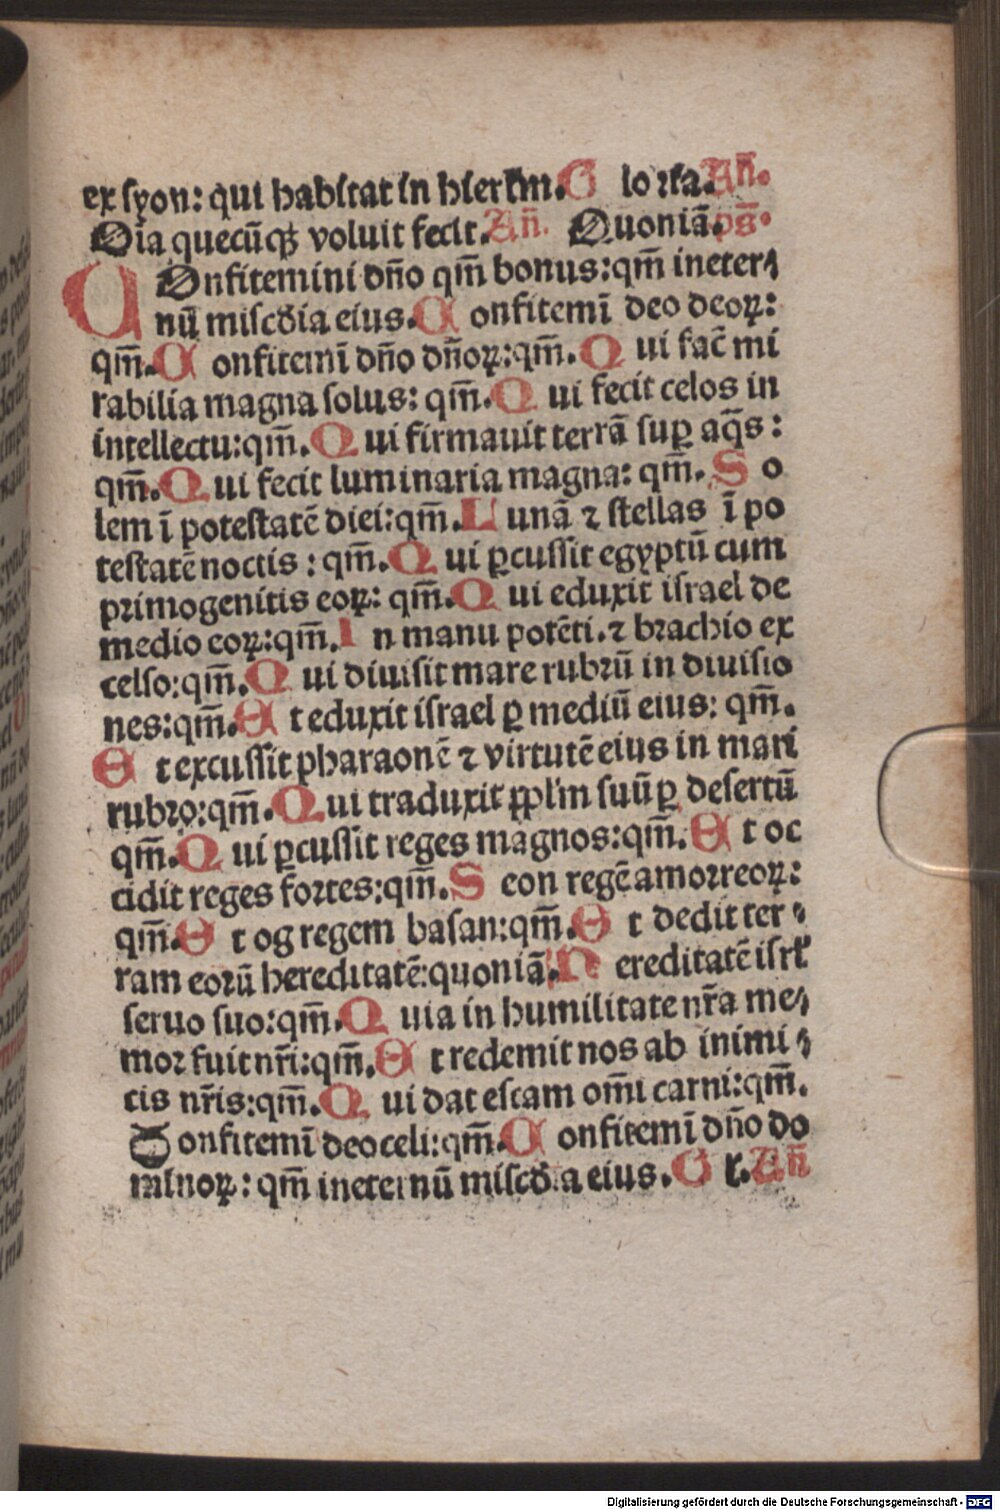 ex syon: qui habitat in hierłm. G loria. Añ.
Oīa quecūqꝫ voluit fecit. Añ. Quoniā. ps̄.
COnfitemini dño qm̄ bonus: qm̄ in eter⸗
nū miſcdia eius. C onfitemī deo deoꝝ:
qm̄. C onfitemī dño dñoꝝ: qm̄. Q ui fac̄ mi
rabilia magna solus: qm̄. Q ui fecit celos in
intellectu: qm̄. Q ui firmauit terrā suꝑ aq̄s:
qm̄. Q ui fecit luminaria magna: qm̄. S o
lem ī poteſtatē diei: qm̄. L unā ⁊ ſtellas ī po
teſtatē noctis: qm̄. Q ui ꝑcuſſit egyptū cum
primogenitis eoꝝ: qm̄. Q ui eduxit iſrael de
medio eoꝝ: qm̄. I n manu potēti. ⁊ brachio ex
celſo: qm̄. Q ui diuiſit mare rubrū in diuiſio
nes: qm̄. E t eduxit iſrael ꝑ mediū eius: qm̄.
E t excuſſit pharaonē ⁊ virtutē eius in mari
rubro: qm̄. Q ui traduxit ꝓpl'm suū ꝑ desertū
qm̄. Q ui ꝑcuſſit reges magnos: qm̄. E t oc
cidit reges fortes: qm̄. S eon regē amorreoꝝ:
qm̄. E t og regem baſan: qm̄. E t dedit ter⸗
ram eorū hereditatē: quoniā. H ereditatē iſrł
ſeruo ſuo: qm̄. Q uia in humilitate nr̄a me⸗
mor fuit nr̄i: qm̄. E t redemit nos ab inimi⸗
cis nr̄is: qm̄. Q ui dat eſcam om̄i carni: qm̄.
Confitemī deo celi: qm̄. C onfitemī dño do
minoꝝ: qm̄ in eternū miſcd̄ia eius. G ł. Añ
Digitalisierung gefördert durch die Deutsche Forschungsgemeinschaft - DFG